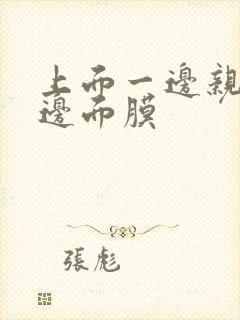 上而一邊親
邊而膜
張彪